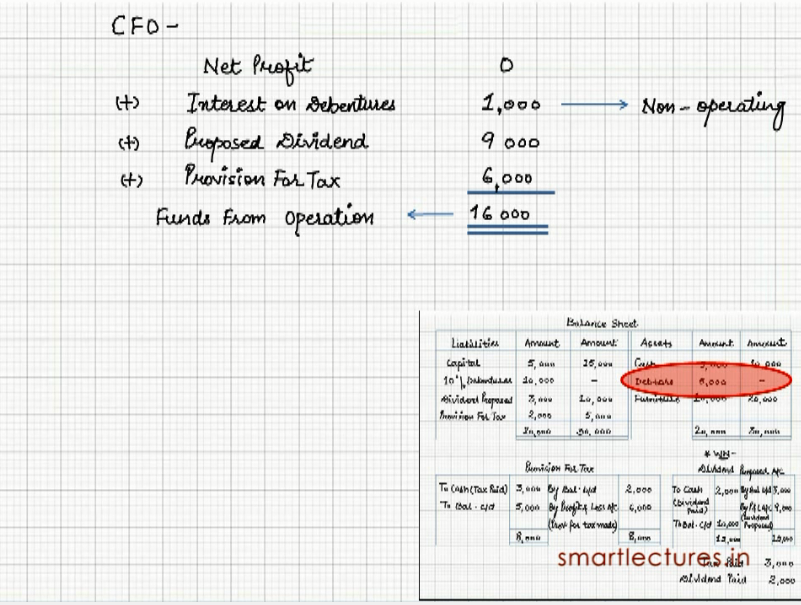 CFO -
Net Profit 0
(+) Interest on Debentures 1,000 → Non-operating
(+) Proposed Dividend 9 000
(+) Provision For Tax 6,000
Funds From Operation ← 16 000
Balance Sheet
Liabilities Amount Amount Assets Amount Amount
Capital 5,000 25,000 Cash 10,000
10% Debentures 10,000 - Debtors -
Dividend Proposed 3,000 Furniture 20,000
Provision For Tax 2,000 5,000
* WN-
Provision For Tax Dividend Proposed A/c
To Cash (Tax Paid) 3,000 By Bal. b/d 2,000 To Cash 2,000 By Bal b/d 3,000
To Bal. c/d 5,000 By Profit & Loss A/c 6,000 (Dividend Paid) By P & L A/c 9,000
(Prov for tax made) To Bal. c/d 10,000 (Dividend Proposed)
8,000 8,000 12,000 12,000
smartlectures.in
Tax Paid 3,000
Dividend Paid 2,000